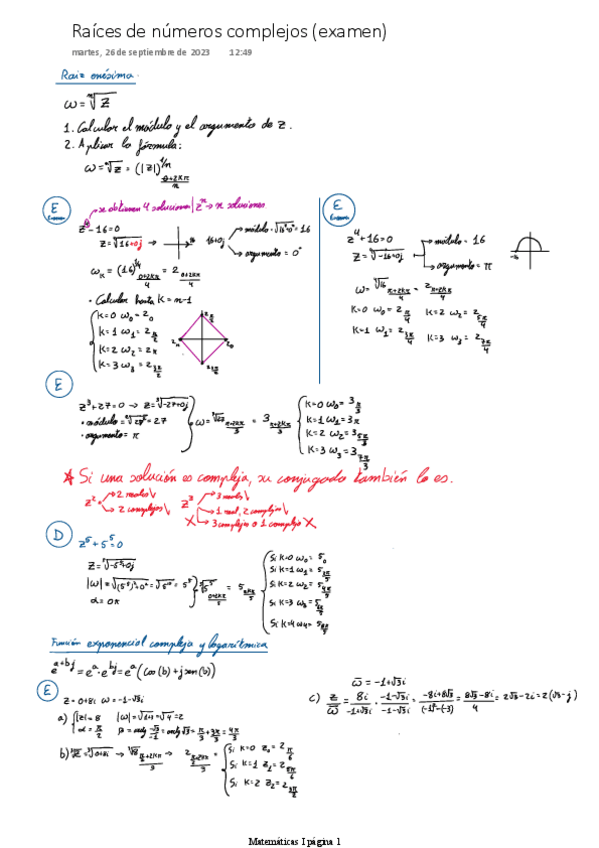 Raíces de números complejos (examen)
martes, 26 de septiembre de 2023 12:49
Raíz enésima.
ω = ⁿ√z
1. Calcular el módulo y el argumento de z.
2. Aplicar la fórmula:
ω = ⁿ√z = (|z|)^1/n θ+2kπ/n
E
se obtienen 4 soluciones | zⁿ → n soluciones
z⁴ - 16 = 0
z = ⁴√16+0j → 16+0j
módulo = √16²+0² = 16
argumento = 0°
ω_k = (16)^1/4 0+2kπ/4 = 2 0+2kπ/4
• Calcular hasta k = n-1
k=0 ω₀ = 2₀
k=1 ω₁ = 2 π/2
k=2 ω₂ = 2π
k=3 ω₃ = 2 3π/2
E
z⁴ + 16 = 0
z = ⁴√-16+0j
módulo = 16
argumento = π
-16
ω = ⁴√16 π+2kπ/4 = 2 π+2kπ/4
k=0 ω₀ = 2 π/4 k=2 ω₂ = 2 5π/4
k=1 ω₁ = 2 3π/4 k=3 ω₃ = 2 7π/4
E
z³ + 27 = 0 → z = ³√-27+0j
• módulo = 27
• argumento = π
ω = ³√27 π+2kπ/3 = 3 π+2kπ/3
k=0 ω₀ = 3 π/3
k=1 ω₁ = 3π
k=2 ω₂ = 3 5π/3
k=3 ω₃ = 3 7π/3
* Si una solución es compleja, su conjugada también lo es.
z² 2 reales √
2 complejos √
z³ 3 reales √
1 real, 2 complejos √
X 3 complejos o 1 complejo X
D
z⁵ + 5⁵ = 0
z = ⁵√-5⁵+0j
|ω| = √(5⁵)²+0² = √5¹⁰ = 5⁵
Si k=0 ω₀ = 5₀
Si k=1 ω₁ = 5 2π/5
Si k=2 ω₂ = 5 4π/5
Si k=3 ω₃ = 5 6π/5
Si k=4 ω₄ = 5 8π/5
Función exponencial compleja y logarítmica
e^a+bj = e^a · e^bj = e^a (cos(b) + j sen(b))
E
z = 0+8i ω = -1-√3i
a) |z| = 8 |ω| = √1+3 = √4 = 2
α = π/2 = π/3 + 3π/3 = 4π/3
b) ³√z = ³√0+8i → ³√8 π/2+2kπ/3 → 2 π/2+2kπ/3
Si k=0 z₀ = 2 π/6
Si k=1 z₁ = 2 5π/6
Si k=2 z₂ = 2 3π/2
ω̄ = -1+√3i
c) z/ω̄ = 8i/-1+√3i · -1-√3i/-1-√3i = -8i+8√3/(-1)²-(-3) = 8√3-8i/4 = 2√3-2i = 2(√3-j)
Matemáticas I página 1